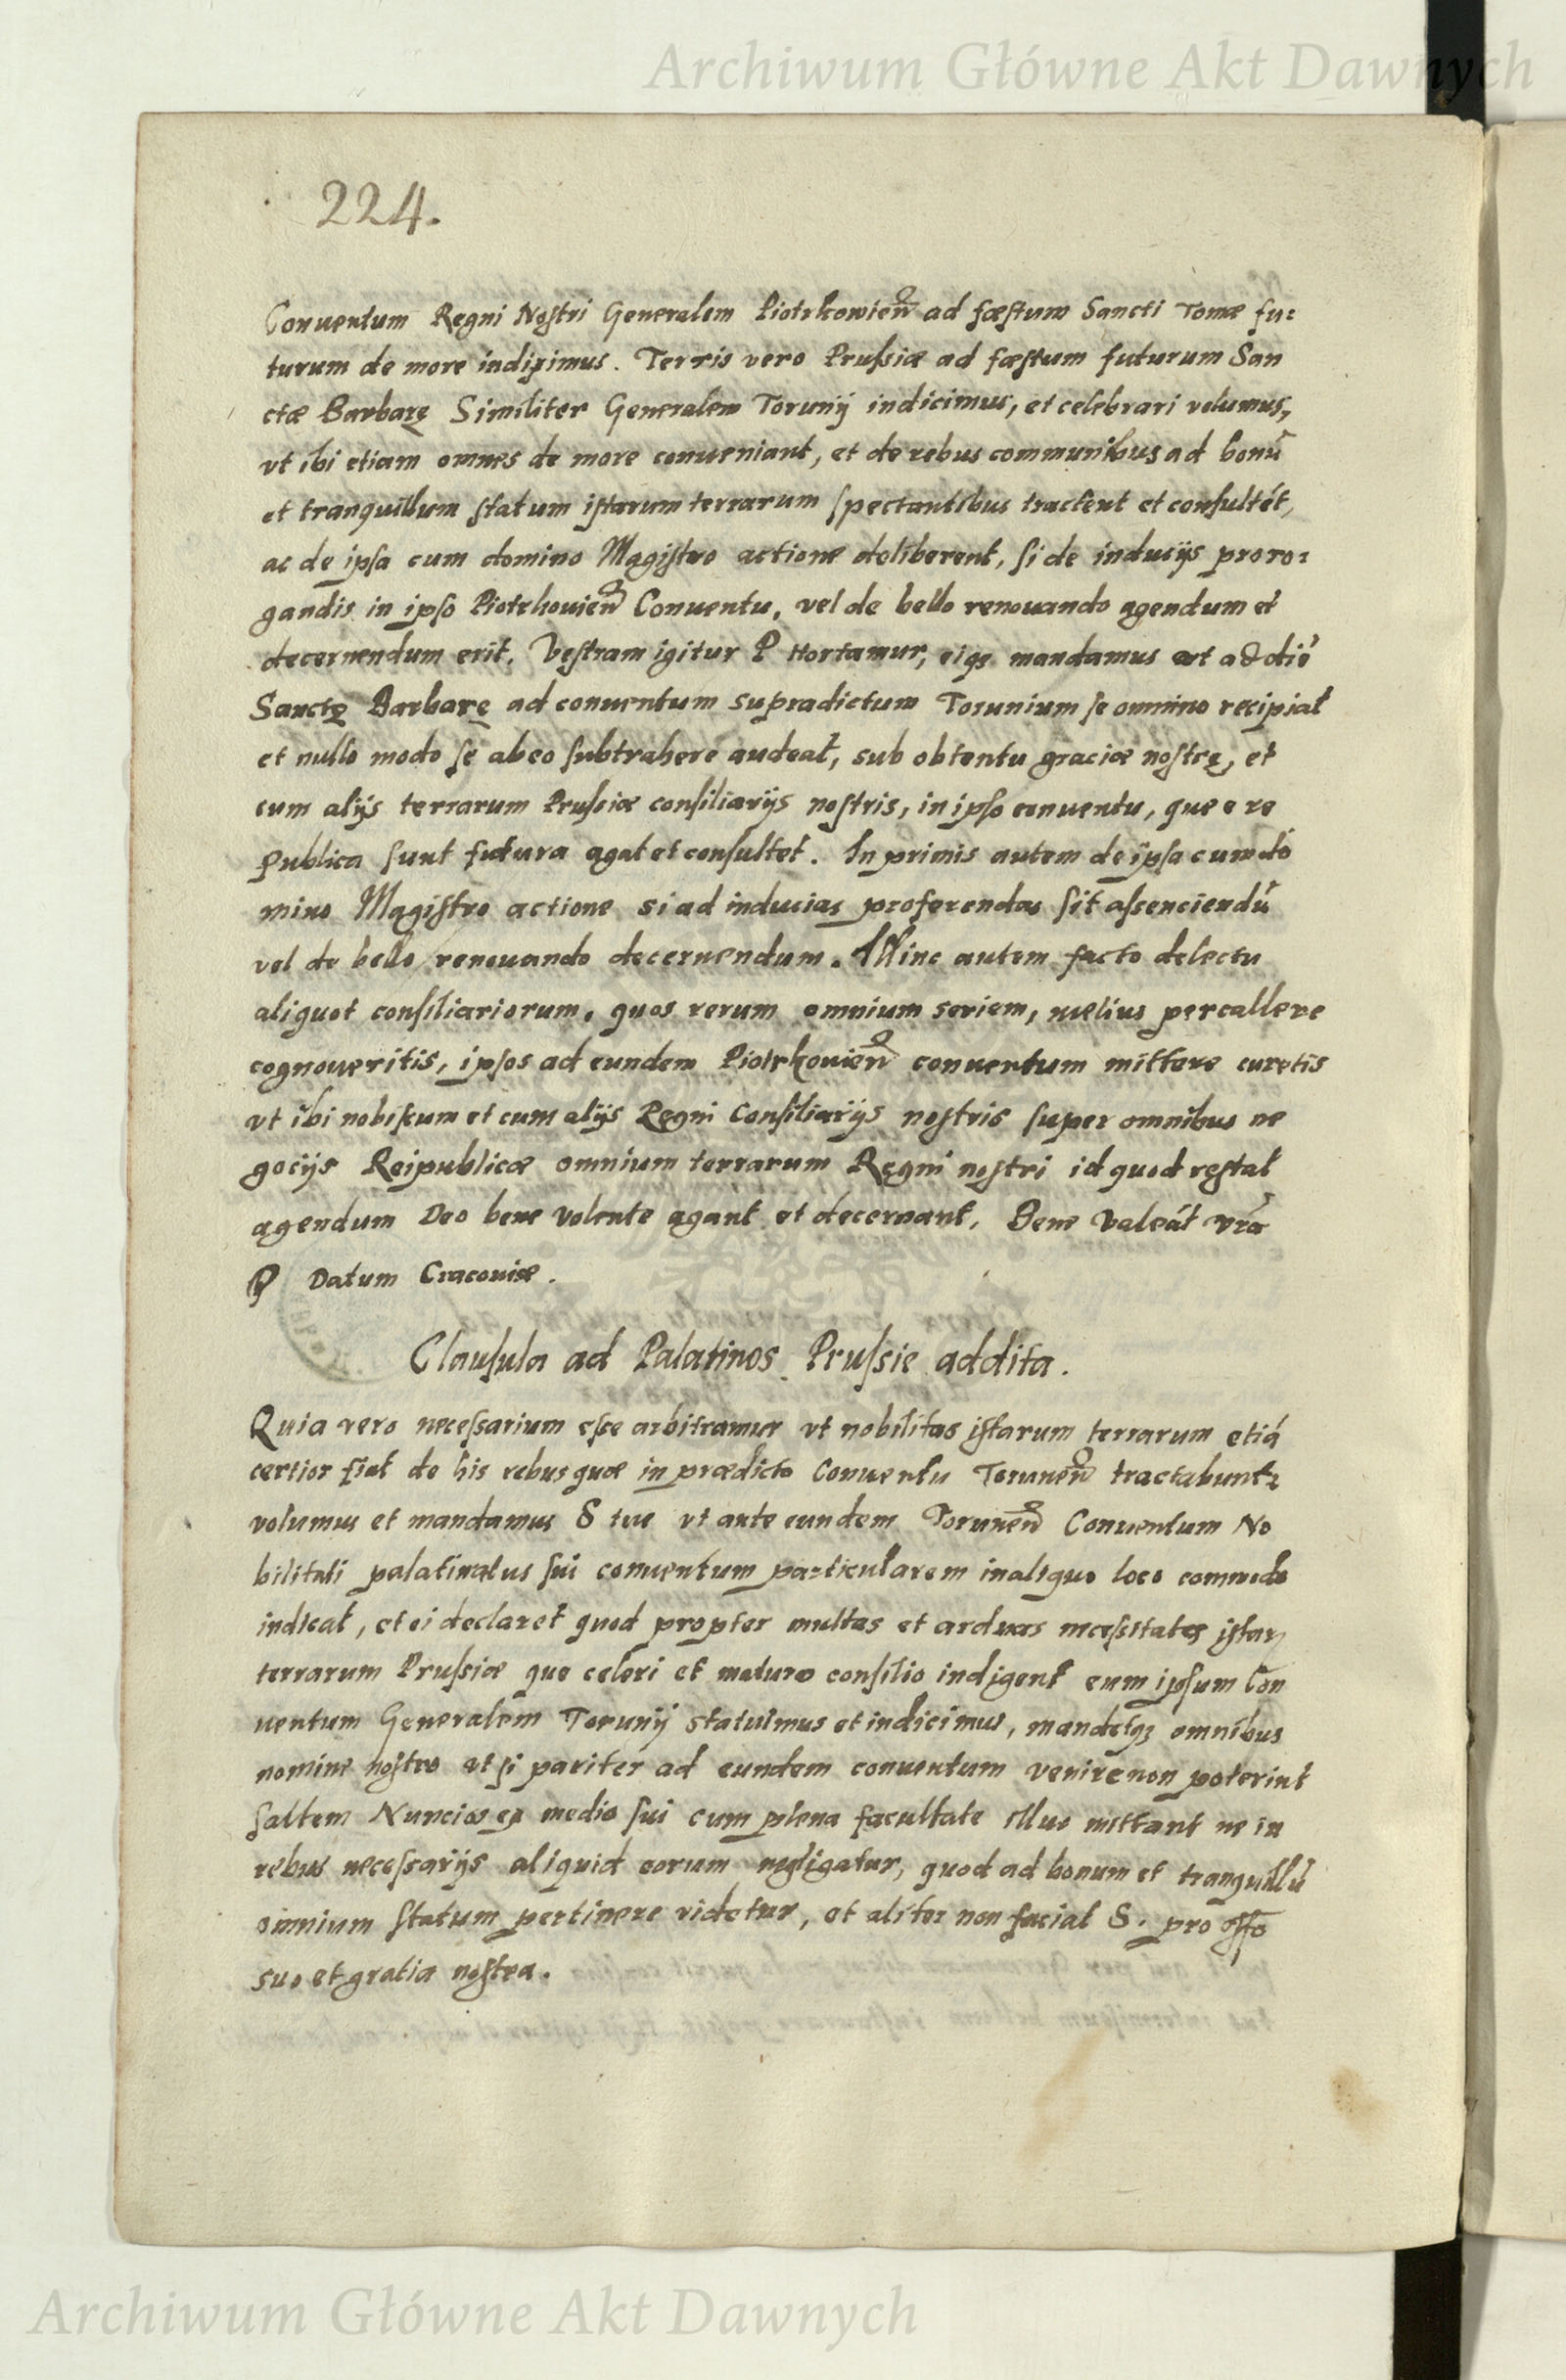 Archiwum Główne Akt Dawnych
224.
Conuentum Regni Nostri Generalem Piotrkowień ad fæstum Sancti Tomæ fu:
turum de more indiximus. Terris vero Prussiæ ad fæstum futurum San
ctæ Barbarę Similiter Generalem Torunij indicimus, et celebrari volumus,
vt ibi etiam omnes de more conueniant, et de rebus communibus ad bonū
et tranquillum statum istarum terrarum spectantibus tractent et consultēt,
ac de ipsa cum domino Magistro actione deliberent, si de inducijs proro:
gandis in ipso Piotrkouień Conuentu, vel de bello renouando agendum et
decernendum erit. Vestram igitur P Hortamur, eiqȝ mandamus vt ad diē
Sanctę Barbarę ad conuentum supradictum Torunium se omnino recipiat
et nullo modo se ab eo subtrahere audeat, sub obtentu graciæ nostrę, et
cum alijs terrarum Prussiæ consiliarijs nostris, in ipso conuentu, que e re
publica sunt futura agat et consultet. In primis autem de ipsa cum do
mino Magistro actione si ad inducias proferendas sit assenciendū
vel de bello renouando decernendum. Illinc autem facto delectu
aliquot consiliariorum, quos rerum omnium seriem, melius percallere
cognoueritis, ipsos ad eundem Piotrkouień conuentum mittere curetis
vt ibi nobiscum et cum alijs Regni Consiliarijs nostris super omnibus ne
gocijs Reipublicæ omnium terrarum Regni nostri id quod restat
agendum Deo bene volente agant et decernant. Bene Valeāt vrā
P Datum Cracouiæ.
Clausula ad Palatinos Prussie addita.
Quia vero necessarium esse arbitramur vt nobilitas istarum terrarum etiā
certior fiat de his rebus quæ in prædicto Conuentu Toruneń tractabuntꝛ
volumus et mandamus S tue vt ante eundem Toruneń Conuentum No
bilitati palatinatus sui conuentum particularem in aliquo loco commodo
indicat, et ei declaret quod propter multas et arduas necessitates istarꝝ
terrarum Prussiæ que celeri et maturo consilio indigent eum ipsum Con
uentum Generalem Torunij statuimus et indicimus, mandetqȝ omnibus
nomine nostro vt si pariter ad eundem conuentum venire non poterint
saltem Nuncios ex medio sui cum plena facultate illuc mittant ne in
rebus necessarijs aliquid eorum negligatur, quod ad bonum et tranquillū
omnium statum pertinere videtur, et aliter non faciat S. pro offo
suo et gratia nostra.
Archiwum Główne Akt Dawnych